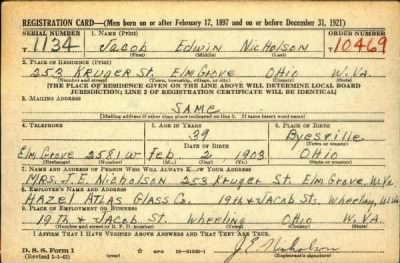 REGISTRATION CARD—(Men born on or after February 17, 1897 and on or before December 31, 1921)
SERIAL NUMBER 1. NAME (Print) ORDER NUMBER
T 1134 Jacob Edwin Nicholson T 10469
(First) (Middle) (Last)
2. PLACE OF RESIDENCE (Print)
253 Kruger St. Elm Grove Ohio W.Va.
(Number and street) (Town, township, village, or city) (County) (State)
[THE PLACE OF RESIDENCE GIVEN ON THE LINE ABOVE WILL DETERMINE LOCAL BOARD
JURISDICTION; LINE 2 OF REGISTRATION CERTIFICATE WILL BE IDENTICAL]
3. MAILING ADDRESS
Same
[Mailing address if other than place indicated on line 2. If same insert word same]
4. TELEPHONE 5. AGE IN YEARS 6. PLACE OF BIRTH
39 Byesville
DATE OF BIRTH (Town or county)
Elm Grove 2581W Feb 2 1903 Ohio
(Exchange) (Number) (Mo.) (Day) (Yr.) (State or country)
7. NAME AND ADDRESS OF PERSON WHO WILL ALWAYS KNOW YOUR ADDRESS
Mrs. J.E. Nicholson 253 Kruger St. Elm Grove, W.Va.
8. EMPLOYER'S NAME AND ADDRESS
Hazel Atlas Glass Co. 19th & Jacob Sts. Wheeling, W.Va.
9. PLACE OF EMPLOYMENT OR BUSINESS
19 Th & Jacob St. Wheeling Ohio W.Va.
(Number and street or R. F. D. number) (Town) (County) (State)
I AFFIRM THAT I HAVE VERIFIED ABOVE ANSWERS AND THAT THEY ARE TRUE.
D. S. S. Form 1
(Revised 1-1-42) (over) J.E. Nicholson
(Registrant's signature)